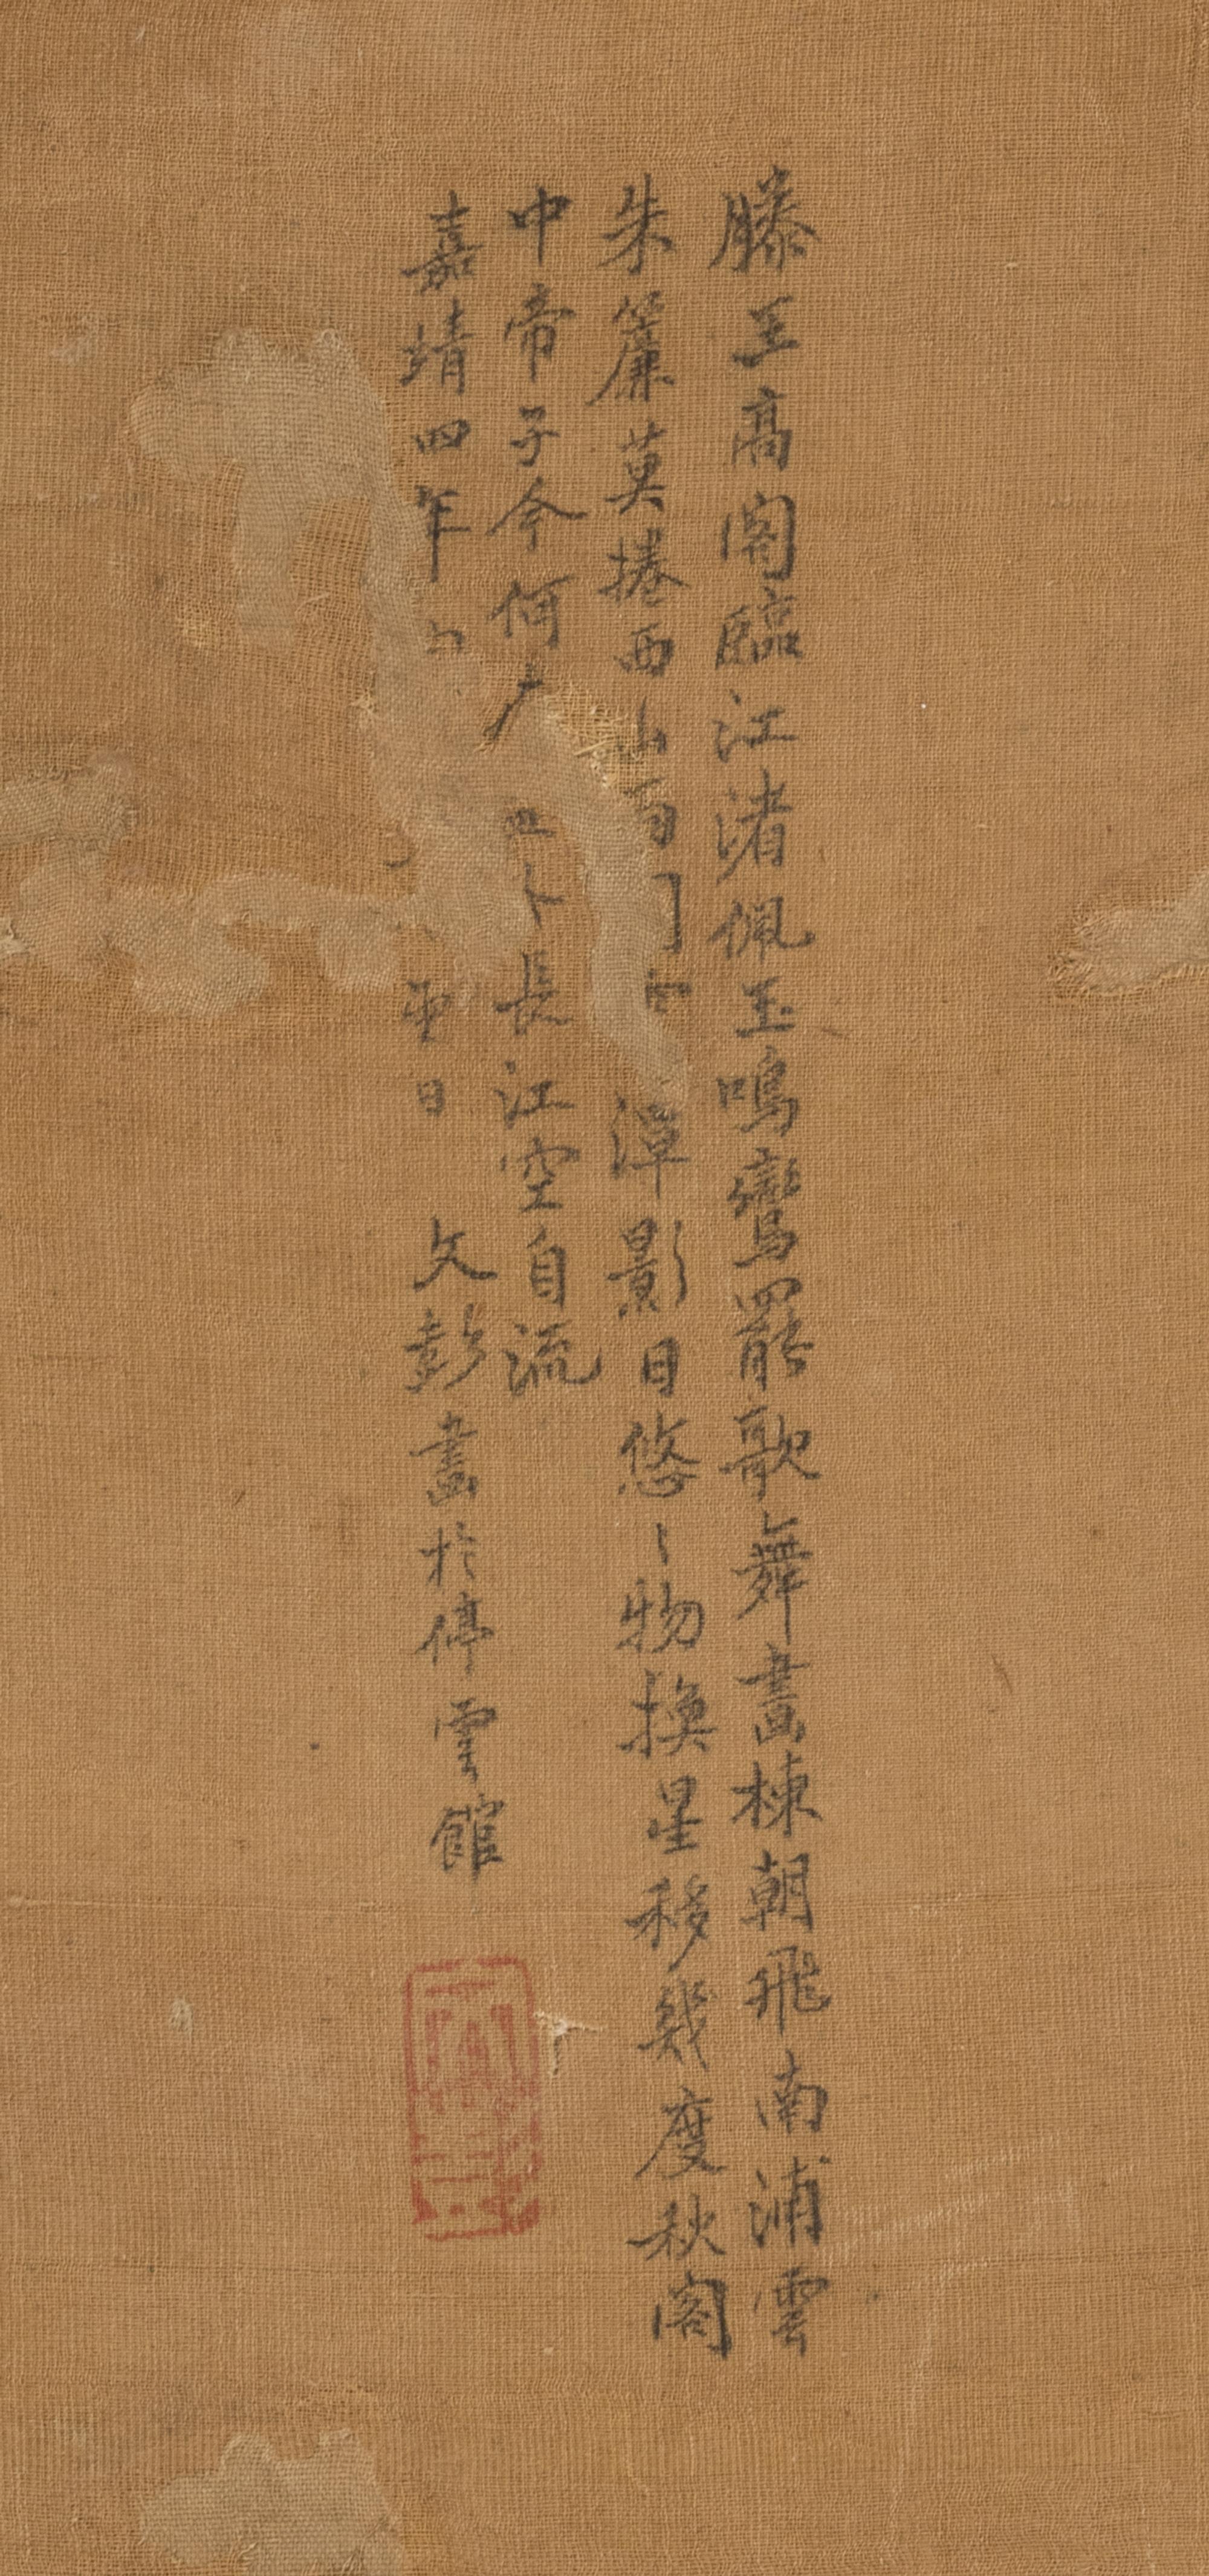 滕王高閣臨江渚佩玉鳴鸞罷歌舞畫棟朝飛南浦雲
朱簾莫捲西山雨潭影日悠〻物換星移幾度秋閣
中帝子今何長江空自流
嘉靖四年日 文彭畫於停雲館